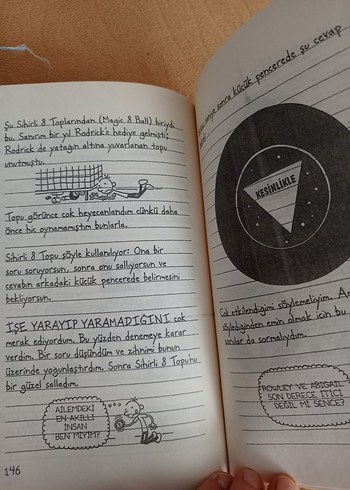 Şu Sihirli 8 Toplarından (Magic 8 Ball) biriydi
bu. Sanırım bir yıl Rodrick'e hediye gelmişti;
Rodrick de yatağın altına yuvarlanan topu
unutmuştu.
Topu görünce çok heyecanlandım çünkü daha
önce hiç oynamamıştım bunlarla.
Sihirli 8 Topu şöyle kullanılıyor: Ona bir
soru soruyorsun, sonra onu sallıyorsun ve
cevabın arkadaki küçük pencerede belirmesini
bekliyorsun.
İŞE YARAYIP YARAMADIĞINI çok
merak ediyordum. Bu yüzden denemeye karar
verdim. Bir soru düşündüm ve zihnimi bunun
üzerinde yoğunlaştırdım. Sonra Sihirli 8 Topu'nu
bir güzel salladım.
AİLEMDEKİ
EN AKILLI
İNSAN
BEN MİYİM?
146
sonra küçük pencerede şu cevap
KESİNLİKLE
Çok etkilendiğimi söylemeliyim.
söylediğinden emin olmak için bu
sorular da sormalıydım.
ROWLEY VE ABIGAIL
SON DERECE İTİCİ
DEĞİL Mİ SENCE?